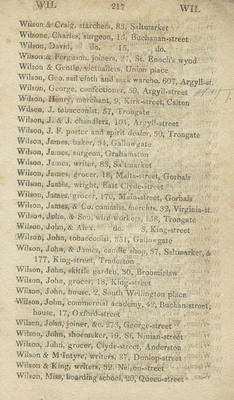 WIL 217 WIL
Wilson & Craig, starchers, 83, Saltmarket
Wilsone, Charles, surgeon, 13, Buchanan-street
Wilson, David, do. 15, do.
Wilson & Ferguson, joiners, 27, St. Enoch's wynd
Wilson & Gentle, victuallers, Union place
Wilson, Geo. sail cloth and sack wareho. 607, Argyll-st.
Wilson, George, confectioner, 59, Argyll-street
Wilson, Henry, merchant, 9, Kirk-street, Calton
Wilson, J. tobacconist, 57, Trongate
Wilson, J. & J. chandlers, 104, Argyll-street
Wilson, J. F. porter and spirit dealer, 50, Trongate
Wilson, James, baker, 34, Gallowgate
Wilson, James, surgeon, Grahamston
Wilson, James, writer, 83, Saltmarket
Wilson, James, grocer, 18, Malta-street, Gorbals
Wilson, James, wright, East Clyde-street
Wilson, James, grocer, 170, Main-street, Gorbals
Wilson, James, & Co. commiss. merchts. 37, Virginia-st.
Wilson, John, & Son, wire workers, 158, Trongate
Wilson, John, & Alex. do. 3, King-street
Wilson, John, tobacconist, 331, Gallowgate
Wilson, John, & James, candle shop, 57, Saltmarket, &
177, King-street, Tradeston
Wilson, John, skittle garden, 30, Broomielaw
Wilson, John, grocer, 18, King-street
Wilson, John, house, 2, South Wellington place
Wilson, John, commercial academy, 49, Buchan-street,
house, 17, Oxford-street
Wilson, John, joiner, &c. 273, George-street
Wilson, John, shoemaker, 19, St. Ninian-street
Wilson, John, grocer, Clyde-street, Anderston
Wilson & M'Intyre, writers, 37, Dunlop-street
Wilson & King, writers, 32, Nelson-street
Wilson, Miss, boarding school, 20, Queen-street